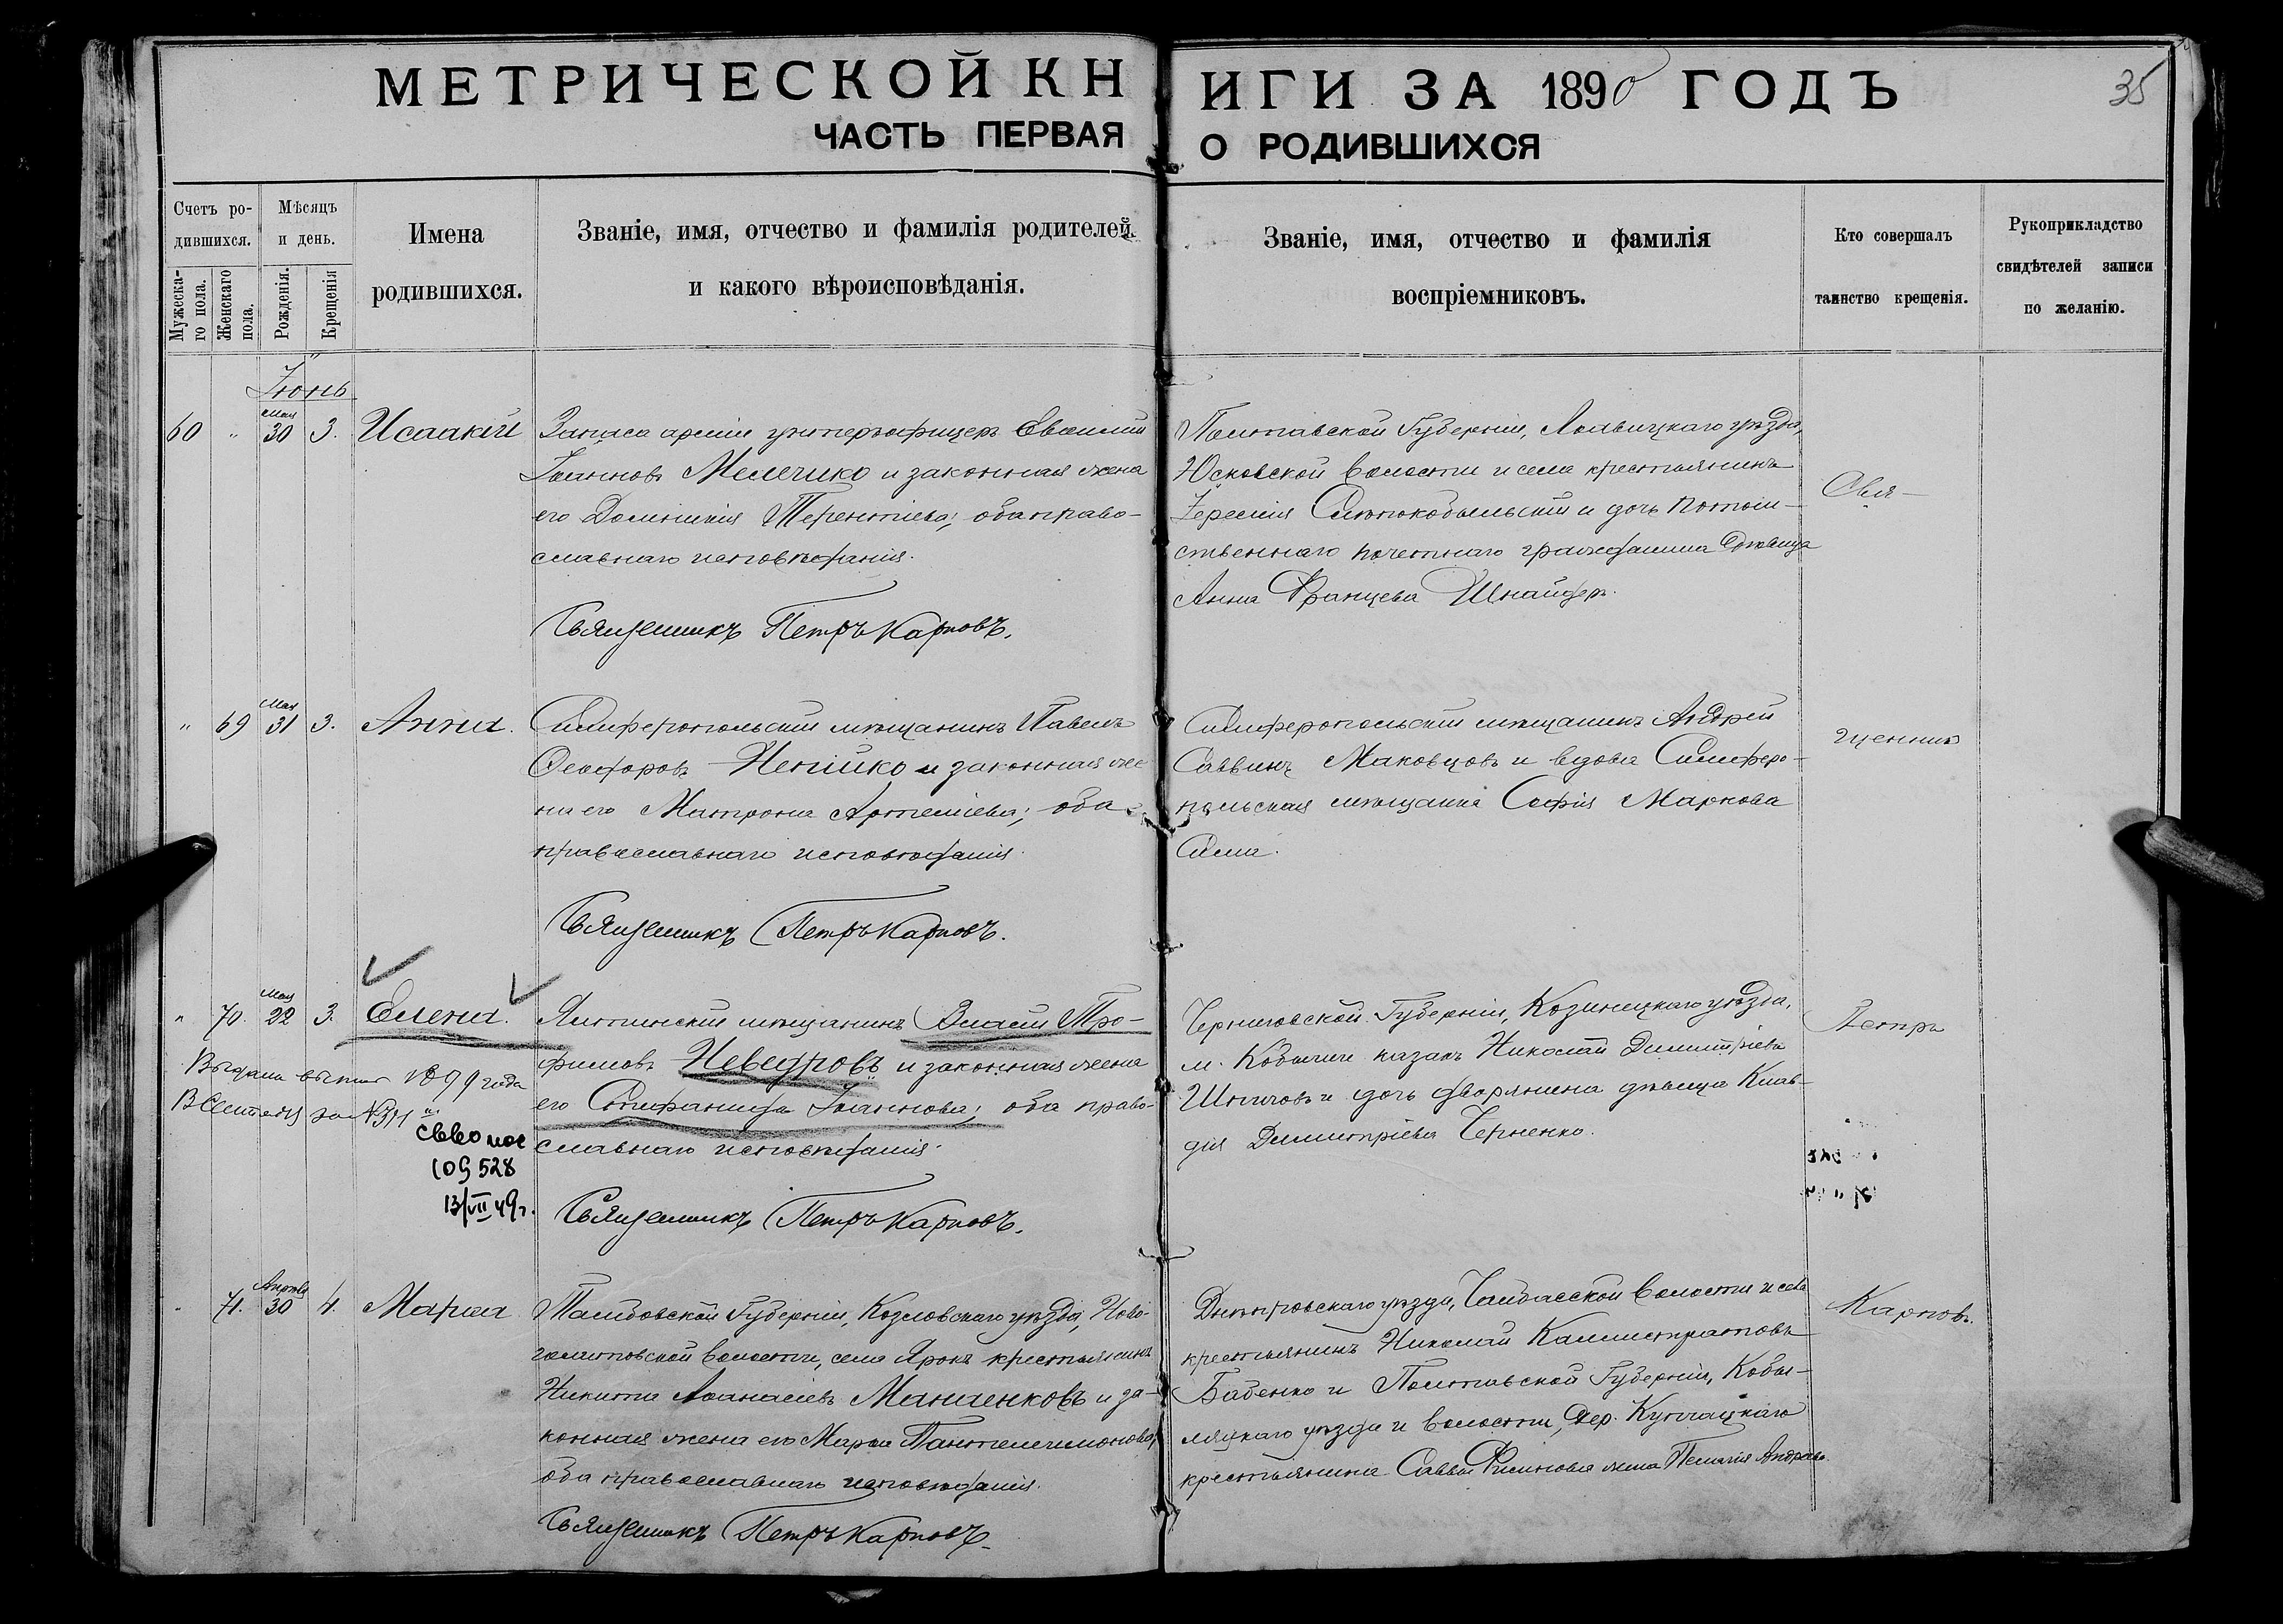 МЕТРИЧЕСКОЙ КНИГИ ЗА 1890 ГОДЪ
35
ЧАСТЬ ПЕРВАЯ О РОДИВШИХСЯ
Счетъ родившихся.
Мужескаго пола.
Женскаго пола.
Мѣсяцъ и день.
Рожденія.
Крещенія
Имена
родившихся.
Званіе, имя, отчество и фамилія родителей
и какого вѣроисповѣданія.
Званіе, имя, отчество и фамилія
воспріемниковъ.
Кто совершалъ
таинство крещенія.
Рукоприкладство
свидѣтелей записи
по желанію.
Іюнь
60 " Мая 30 3. Исаакій
Запаса арміи унтеръ-офицеръ
Іоанновъ Мелечко и законная жена
его Домникія Терентіева; оба право-
славнаго исповѣданія.
Священникъ Петръ Карповъ.
Полтавской Губерніи, уѣзда,
Юсковской волости и села крестьянинъ
Іеремія и дочь потом-
ственнаго почетнаго гражданина дѣвица
Анна Францева Шнайдеръ.
Свя-
" 69 Мая 31 3. Анна.
Симферопольскій мѣщанинъ Павелъ
Ѳеодоровъ и законная же
на его Матрона Артеміева; оба
православнаго исповѣданія.
Священникъ Петръ Карповъ.
Симферопольскій мѣщанинъ Андрей
Саввинъ Маковцовъ и вдова Симферо-
польская мѣщанка Софія Маркова
щенникъ
" 70. Мая 22 3. Елена.
Ялтинскій мѣщанинъ Власій Тро-
фимовъ Неведровъ и законная жена
его Епифанида Іоаннова; оба право-
славнаго исповѣданія.
Священникъ Петръ Карповъ.
Выдана 1899 года
за №
109528
13/VII 49г.
Черниговской Губерніи, Козинецкаго уѣзда,
м. Кобыжчи казакъ Николай Димитріевъ
и дочь дворянина дѣвица Клав-
дія Димитріева Черненко.
Петръ
" 71. Апрѣля 30 4. Марія
Тамбовской Губерніи, Козловскаго уѣзда,
волости, села Ярокъ крестьянинъ
Никита Аѳанасіевъ Маншенковъ и за-
конная жена его Марія Пантелеимонова,
оба православнаго исповѣданія.
Священникъ Петръ Карповъ.
Днѣпровскаго уѣзда, Чалбасской волости и села
крестьянинъ Николай Каллистратовъ
Бабенко и Полтавской Губерніи, Кобы-
ляцкаго уѣзда и волости, дер.
крестьянина Саввы жена Пелагія
Карповъ.